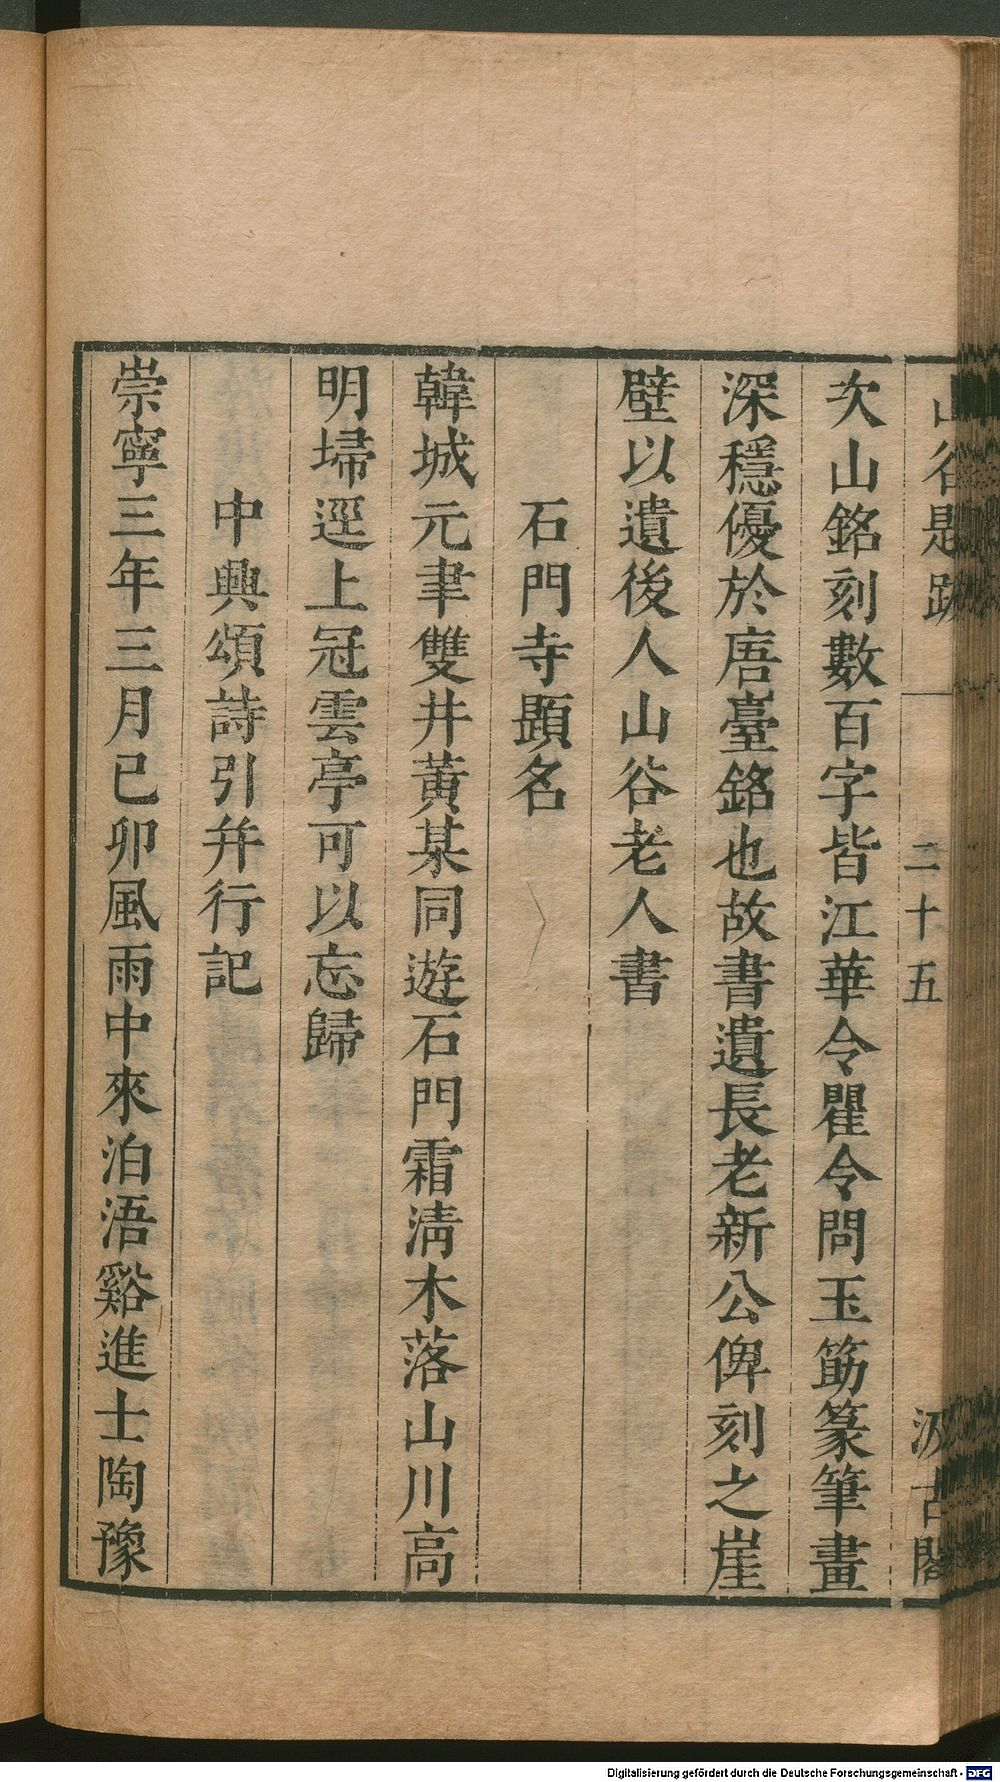 山谷題跋
二十五
汲古閣
次山銘刻數百字皆江華令瞿令問玉筯篆筆畫
深穩優於唐臺銘也故書遺長老新公俾刻之崖
壁以遺後人山谷老人書
石門寺題名
韓城元聿雙井黃某同遊石門霜清木落山川高
明埽逕上冠雲亭可以忘歸
中興頌詩引幷行記
崇寧三年三月已卯風雨中來泊浯谿進士陶豫
Digitalisierung gefördert durch die Deutsche Forschungsgemeinschaft - DFG